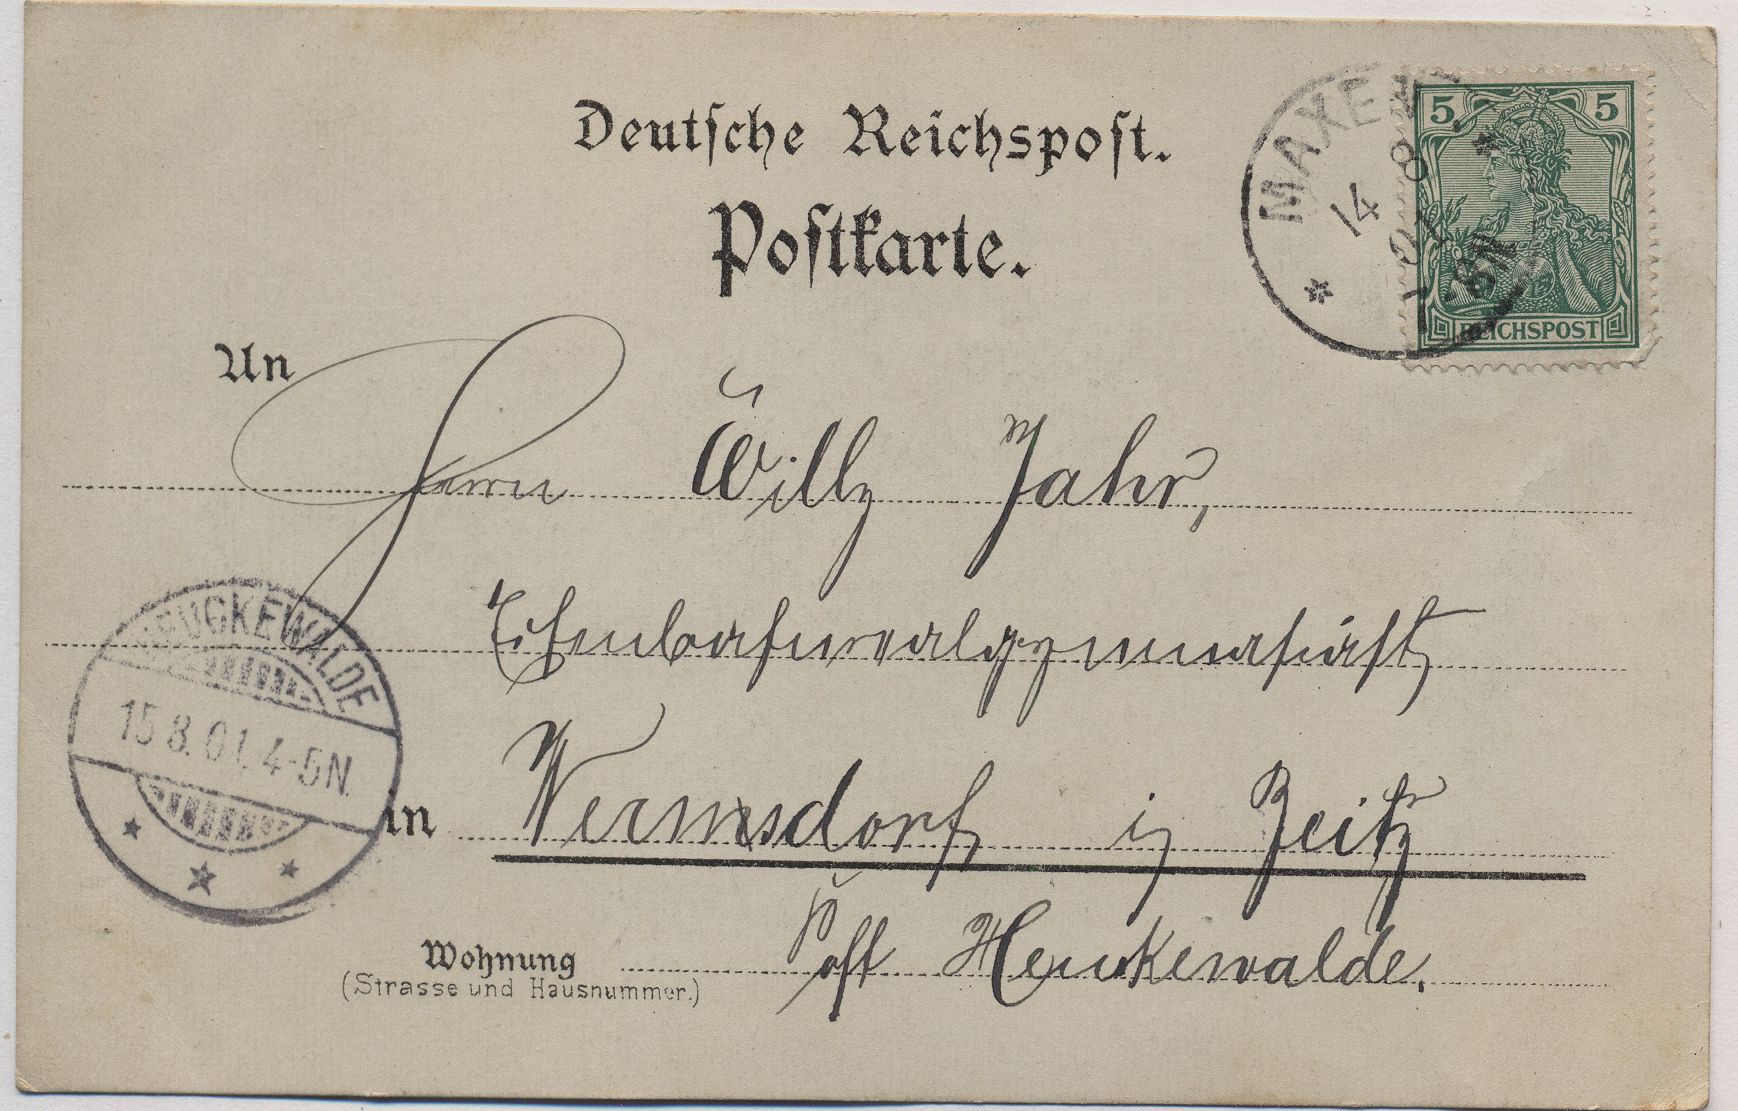 Deutsche Reichspost.
Postkarte.
MAXEN
14 8 01
5 5
REICHSPOST
An
Herrn Willy Jahr,
in Wermsdorf i/ Zeitz
Post Heuckewalde.
HEUCKEWALDE
15.8.01. 4-5N.
Wohnung
(Strasse und Hausnummer.)